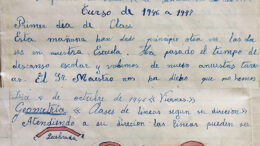 Curso de 1946 a 1947
Primer día de Clase
Esta mañana han dado principio otra vez, las cla
ses en nuestra Escuela. Han pasado el tiempo de
descanso escolar y volvemos de nuevo a nuestras tareas
El Sr Maestro nos ha dicho que
de octubre de 1946 «Viernes»
Geometría « Clases de líneas según su dirección»
Atendiendo a su dirección las líneas pueden ser
Quebrada